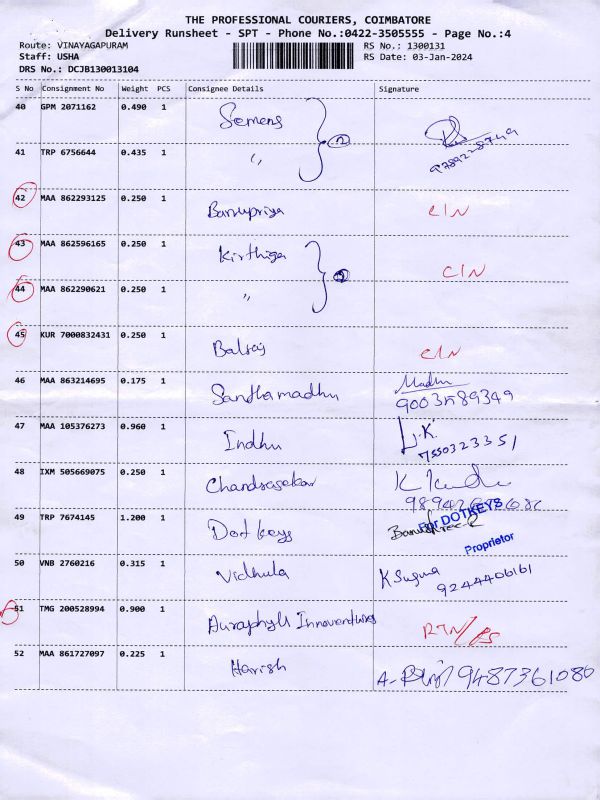 THE PROFESSIONAL COURIERS, COIMBATORE
Delivery Runsheet - SPT - Phone No.:0422-3505555 - Page No.:4
Route: VINAYAGAPURAM RS No.: 1300131
Staff: USHA RS Date: 03-Jan-2024
DRS No.: DCJB130013104
S No Consignment No Weight PCS Consignee Details Signature
40 GPM 2071162 0.490 1 Semens 2
41 TRP 6756644 0.435 1 〃
42 MAA 862293125 0.250 1 Banupriya CIN
43 MAA 862596165 0.250 1 Kirthiga CIN
44 MAA 862290621 0.250 1 〃
45 KUR 7000832431 0.250 1 Balraj CIN
46 MAA 863214695 0.175 1 Santhamadhu Madhu
9003589349
47 MAA 105376273 0.960 1 Indhu L.K.
7550323351
48 IXM 505669075 0.250 1 Chandrasekar
49 TRP 7674145 1.200 1 Dot keys For DOTKEYS
Proprietor
50 VNB 2760216 0.315 1 Vidhula K Suguna
9244406161
51 TMG 200528994 0.900 1 Auraphyll Innoventures RTN/RS
52 MAA 861727097 0.225 1 Harish 9487361080